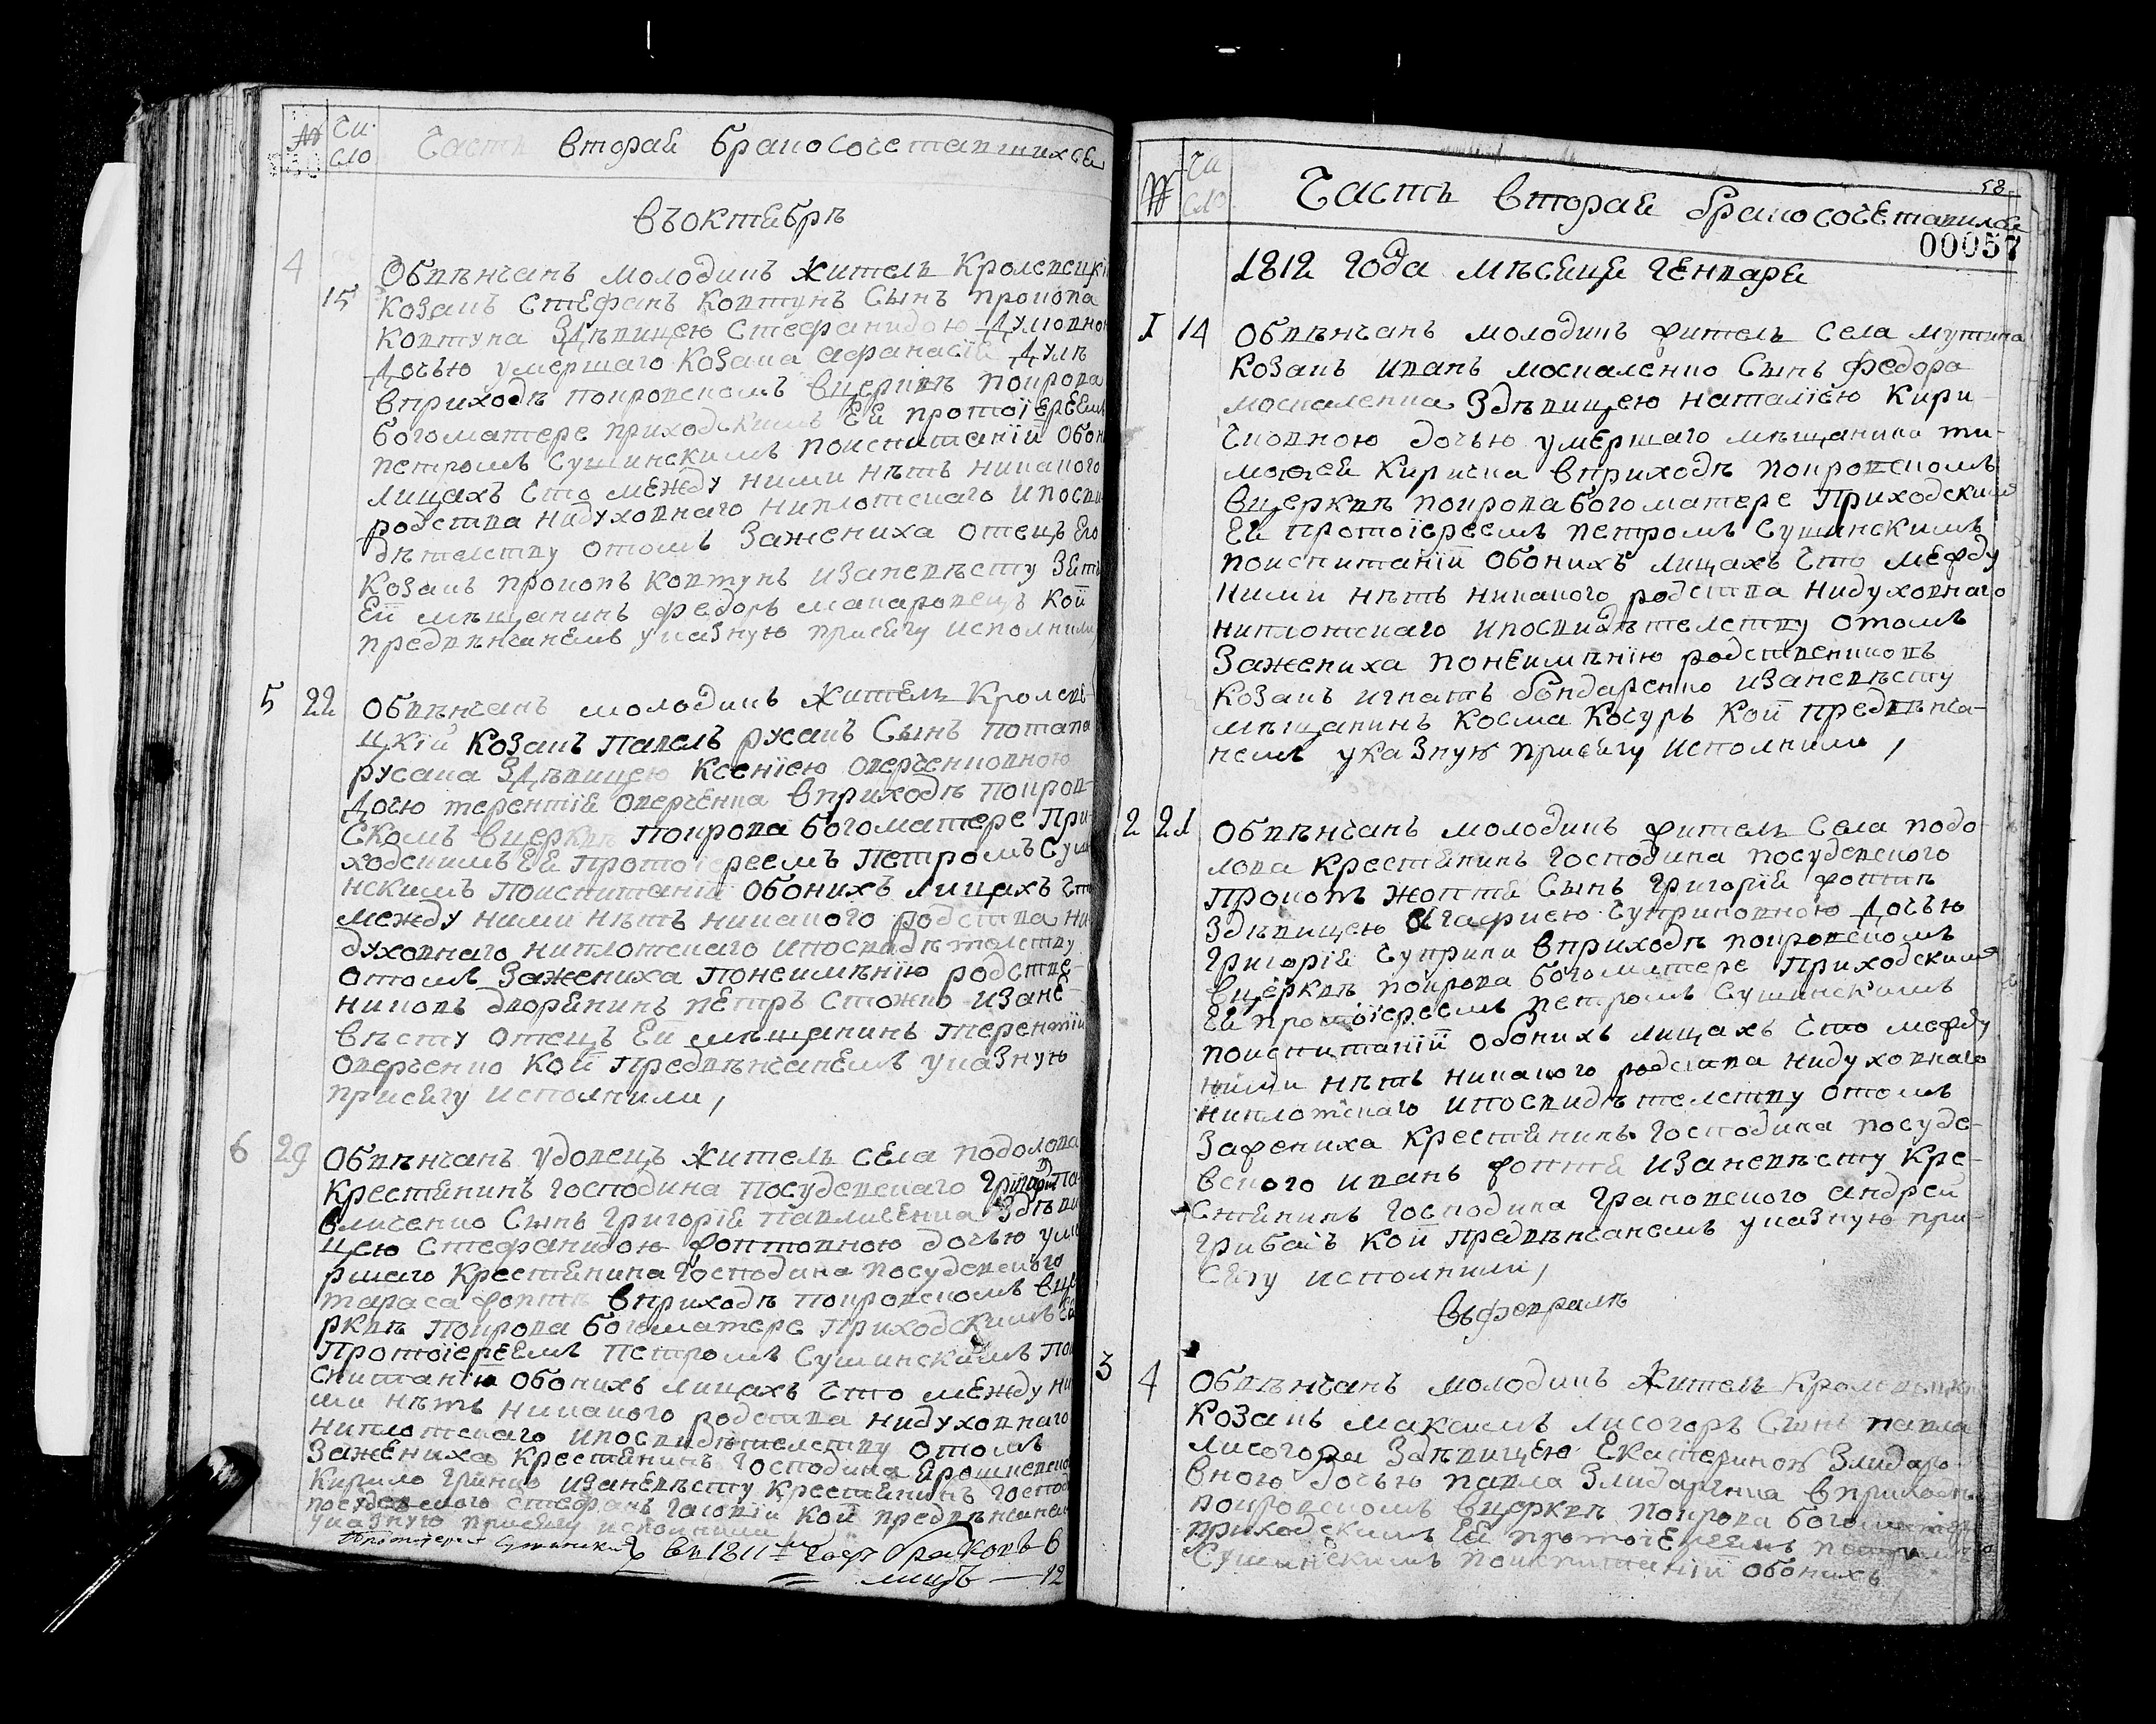 №
Чи
сло
Часть вторая бракосочетавшихся
въоктябрѣ
4
15
Обвѣнчанъ молодикъ житель Кролевецкій
козакъ Стефанъ Ковтунъ Сынъ прокопа
Ковтуна Здѣвицею Стефанидою
Дочью умершаго Козака афанасія
вприходѣ покровскомъ вцерквѣ покрова
богоматере приходскимъ Ея протоіереемъ
петромъ Сушинскимъ поиспитаніи Обоих
лицахъ Что между ними нѣтъ никакого
родства нидуховнаго ниплотскаго ипосви
дѣтелству отомъ Зажениха отецъ Его
Козакъ прокопъ Ковтунъ изаневѣсту Зять
Ея мѣщанинъ федоръ макаровецъ Кои
предвѣнчанемъ указную присягу исполнили
5 22
Обвѣнчанъ молодикъ Житель Кролеве-
цкій Козакъ Павелъ русакъ Сынъ потапа
русака Здѣвицею Ксеніею оверченковною
Дочю терентія Оверченка вприходѣ покров-
Скомъ вцерквѣ Покрова богоматере При-
ходскимъ Ея Протоіереемъ Петромъ Суши
нскимъ Поиспитаніи обоникъ лицахъ Что
между ними нѣтъ никакого родства ни
духовнаго ниплотскаго ипосвидѣтелству
отомъ Зажениха Понеимѣнію родстве-
никовъ дворянинъ пётръ Стожко изане-
вѣсту отецъ Ея мѣщанинъ терентій
оверченко Кои Предвѣнчанемъ указную
присягу исполнили,
6 29
Обвѣнчанъ удовецъ житель села подолова
Крестянинъ Господина Посудевскаго Григорій Па-
вличенко Сынъ Григорія Павличенка Здѣви
цею Стефанидою фоптовною дочью уме
ршаго Крестянина Господина посудевского
тараса фоптѣ вприходѣ покровскомъ вце
рквѣ Покрова богоматере Приходскимъ Ея
Протоіереемъ Петромъ Сушинскимъ Пои
спитаніи обонихъ лицахъ Что между ни
ми нѣтъ никакого родства нидуховнаго
ниплотскаго ипосвидѣтелству отомъ
Зажениха Крестянинъ Господина
Кирило Гринко изаневѣсту Крестянинъ Госпо
посудевского стефанъ Кои предвѣнчанем
указную присягу исполнили
Протоіерей Сушинскій въ 1811 м годѣ браковъ 6
лицъ — 12
№
Чи
сло.
Часть вторая бракосочетавшихся
58
00057
1812 года мѣсяця генваря
1 14
Обвѣнчанъ молодикъ житель Села мутина
Козакъ иванъ москаленко Сынъ федора
москаленка Здѣвицею наталіею Кири-
чковною дочью умершаго мѣщанина ти-
мофея Киричка вприходѣ покровскомъ
вцерквѣ покрова богоматере Приходскимъ
Ея Протоіереемъ петромъ Сушинскимъ
поиспитаніи Обонихъ лицахъ Что между
ними нѣтъ никакого родства нидуховнаго
ниплотскаго ипосвидѣтелству отомъ
Зажениха понеимѣнію родствениковъ
Козакъ игнатъ бондаренко изаневѣсту
мѣщанинъ Косма Косуръ Кои предвѣнча-
немъ указную присягу исполнили,
2 21
Обвѣнчанъ молодикъ житель Села подо-
лова Крестянинъ Господина посудевского
Прокопъ жоптя Сынъ Григорія фоптѣ
Здѣвицею Агафиею Чуприковною дочью
Григорія Чуприки вприходѣ покровскомъ
вцерквѣ покрова богоматере Приходскимъ
Ея протоіереемъ петромъ Сушинскимъ
поиспитаніи обонихъ лицахъ Что между
ними нѣтъ никакого родства нидуховнаго
ниплотскаго ипосвидѣтелству отомъ
Зажениха Крестянинъ Господина посуде-
вского иванъ фоптя изаневѣсту Кре-
Стянинъ Господина Грановского андрей
Грибакъ Кои предвѣнчанемъ указную при-
сягу исполнили,
въфевралѣ
3 4
Обвѣнчанъ молодикъ житель Кролевецкій
Козакъ максимъ лисогоръ Сынъ павла
лисогора Здѣвицею Екатериною Злидаре-
вною дочью павла Злидаренка вприходѣ
покровскомъ вцерквѣ покрова богоматере
приходскимъ Ея протоіереемъ петромъ
Сушинскимъ поиспитаніи обонихъ